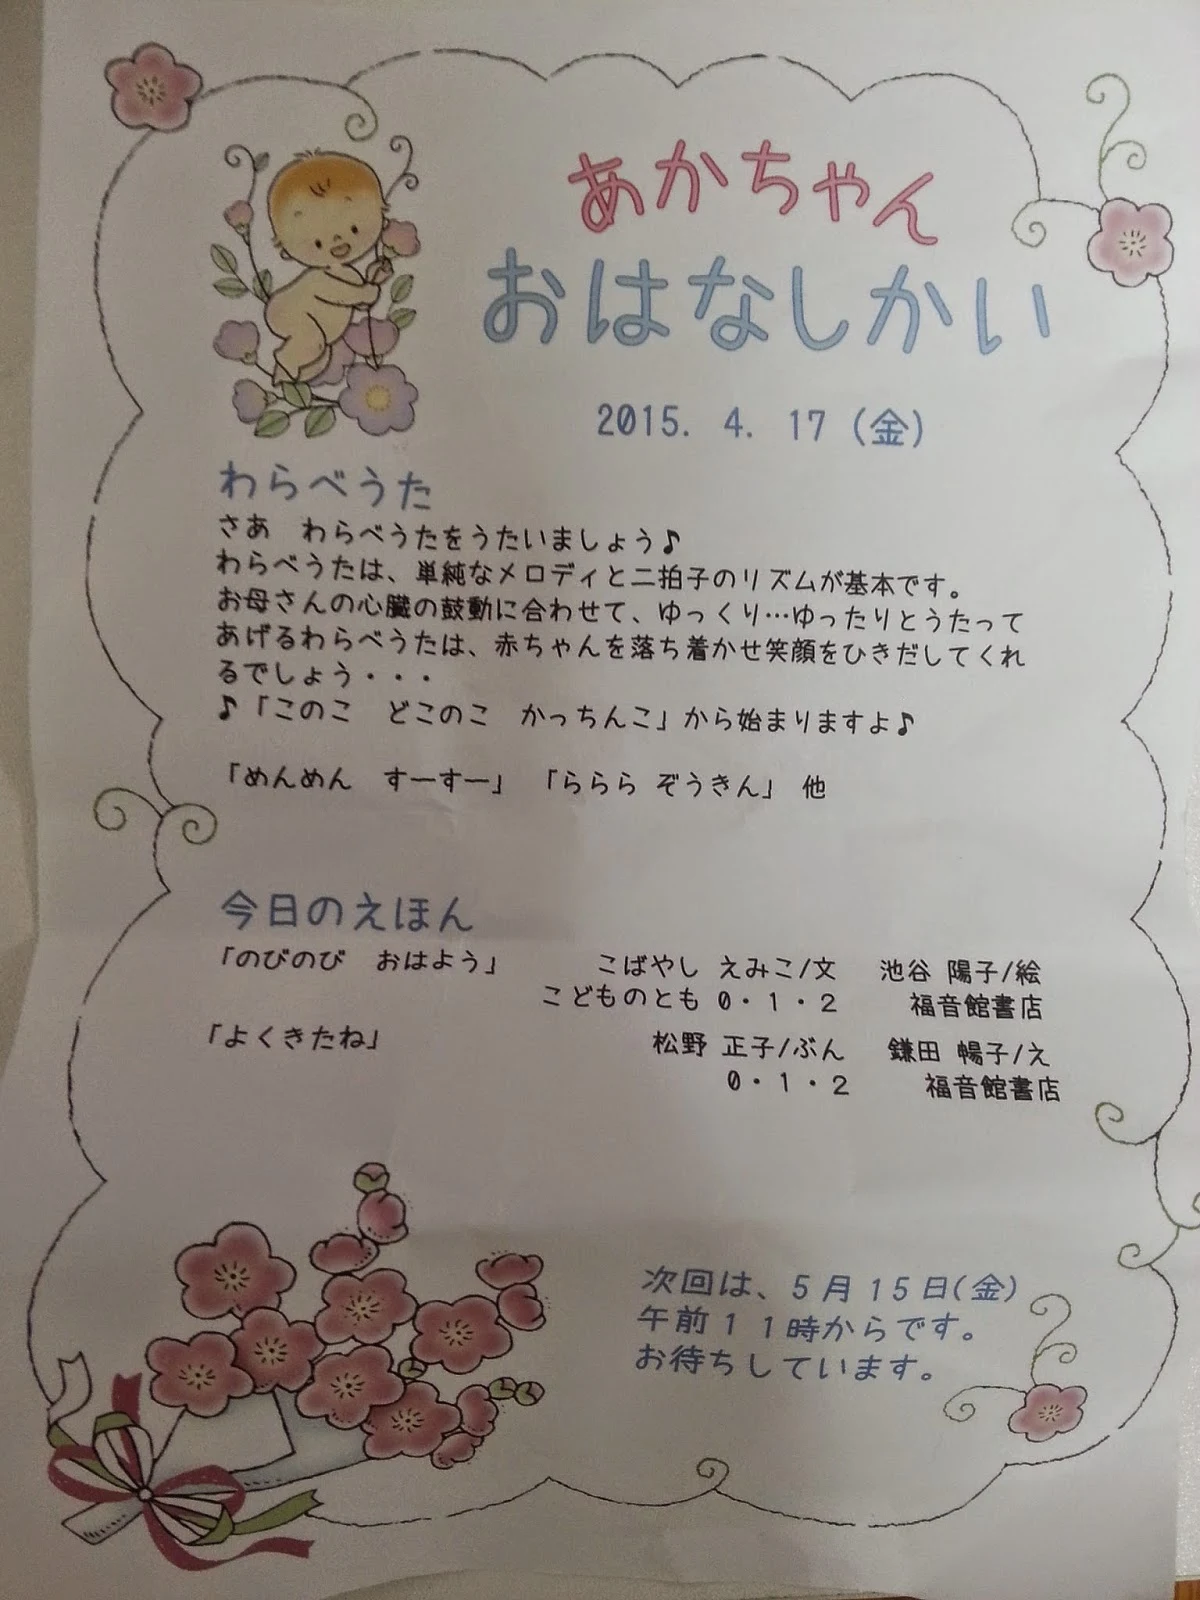 あかちゃん
おはなしかい
2015. 4. 17 (金)
わらべうた
さあ　わらべうたをうたいましょう♪
わらべうたは、単純なメロディと二拍子のリズムが基本です。
お母さんの心臓の鼓動に合わせて、ゆっくり…ゆったりとうたって
あげるわらべうたは、赤ちゃんを落ち着かせ笑顔をひきだしてくれ
るでしょう・・・
♪「このこ　どこのこ　かっちんこ」から始まりますよ♪
「めんめん　すーすー」　「ららら ぞうきん」　他
今日のえほん
「のびのび　おはよう」　こばやし えみこ/文　池谷 陽子/絵
こどものとも 0・1・2　福音館書店
「よくきたね」　松野 正子/ぶん　鎌田 暢子/え
0・1・2　福音館書店
次回は、5月15日(金)
午前11時からです。
お待ちしています。